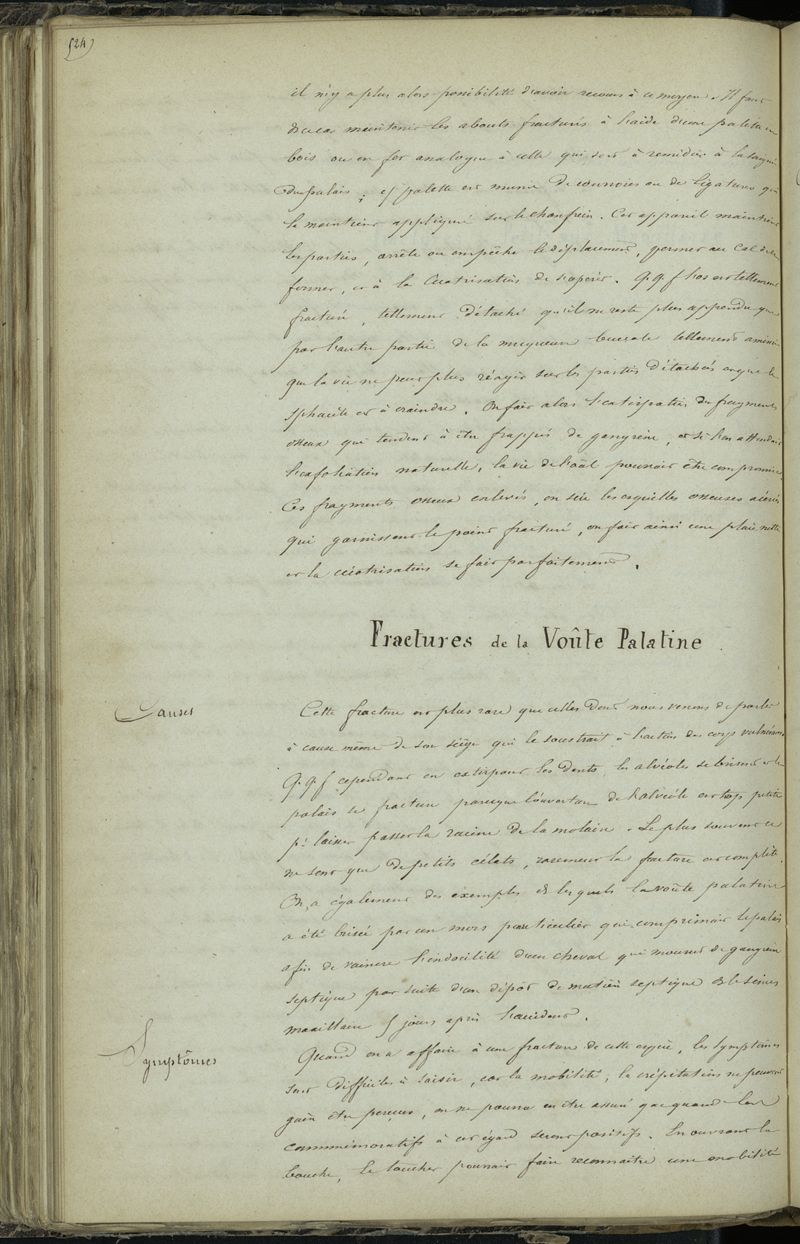 524)
il n'y a plus alors possibilité d'avoir recours à ce moyen. Il faut
dans ce cas maintenir les abouts fracturés à l'aide d'une palette en
bois ou en fer analogue à celle qui sert à remédier à la
du palais; cette palette est munie de courroies ou de ligatures qui
la maintient appliquée sur le chanfrein. Cet appareil maintient
les parties, arrête ou empêche le déplacement, permet au cal de se
former, et à la cicatrisation de s'opérer. q.q.f l'os est tellement
fracturé, tellement détaché qu'il ne reste plus appendu que
par l'autre partie de la muqueuse buccale tellement amincie
que la vie ne peut plus réagir sur les parties détachées et que le
sphacèle est à craindre. On fait alors l'extirpation des fragments
osseux qui tendent à être frappés de gangrène, et si l'on attendait
l'exfoliation naturelle, la vie de l'anal pourrait être compromise
Ces fragments osseux enlevés, on scie les esquilles osseuses acérées
qui garnissent le point fracturé, on fait ainsi une plaie nette
et la cicatrisation se fait parfaitement.
Fractures de la Voûte Palatine
Causes
Cette fracture est plus rare que celles dont nous venons de parler
à cause même de son siège qui le soustrait à l'action des corps vulnérants
q.q.f cependant en extirpant les dents, les alvéoles se brisent et le
palais se fracture parceque l'ouverture de l'alvéole est trop petite
pr laisser passer la racine de la molaire. Le plus souvent ce
ne sont que de petits éclats, rarement la fracture est complète.
On a également des exemples ds lesquels la voûte palatine
a été brisée par un mors particulier qui comprimait le palais
afin de vaincre l'indocilité d'un cheval qui mourut de gangrène
septique par suite d'un dépôt de matière septique ds le sinus
maxillaire 5 jours après l'accident.
Symptômes
Quand on a affaire à une fracture de cette espèce, les symptômes
sont difficiles à saisir, car la mobilité, la crépitation ne peuvent
guère être perçues, on ne pourra en être assuré que quand les
commémoratifs à cet égard seront positifs. En ouvrant la
bouche, le toucher pourrait faire reconnaître une mobilité